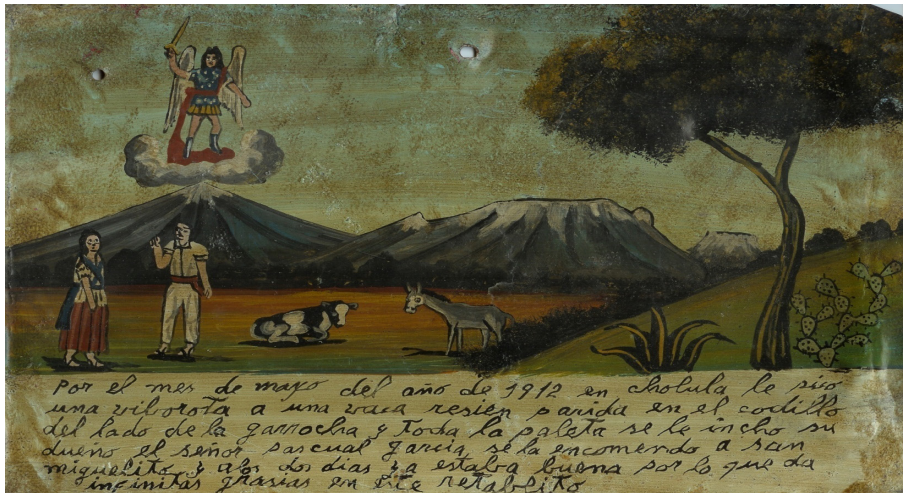 Por el mes de mayo del año de 1912 en cholula le pico
una viborota a una vaca resien parida en el codillo
del lado de la garrocha y toda la paleta se le incho su
dueño el señor pascual garcia se la encomendo a san
miguelito y a los dos dias ya estaba buena por lo que da
infinitas grasias en este retablito